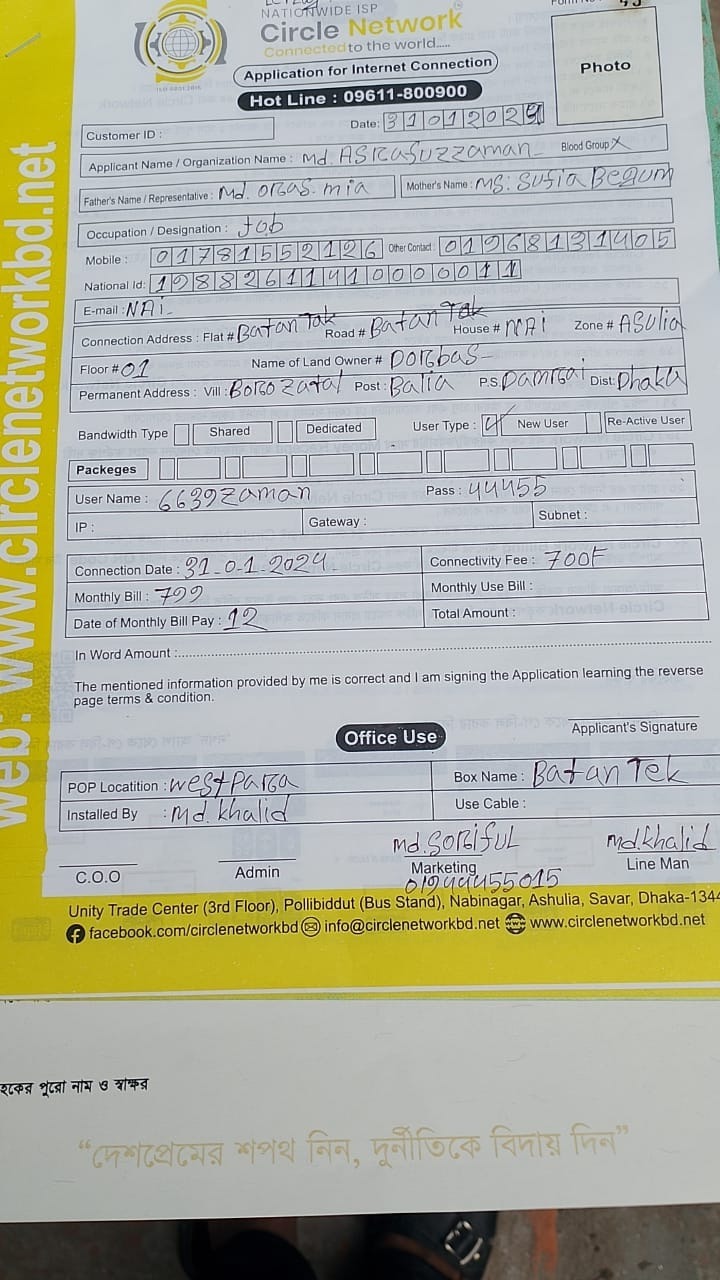 NATIONWIDE ISP
Circle Network
Connected to the world.....
ISO 9001:2015
Application for Internet Connection
Hot Line : 09611-800900
Photo
Customer ID :
Date: 31012024
Applicant Name / Organization Name : Md. ASRafuzzaman Blood Group X
Father's Name / Representative : Md. ORas. mia Mother's Name : MS: Sufia Begum
Occupation / Designation : Job
Mobile : 01781552126 Other Contact : 01968131405
National Id: 19882611141000011
E-mail : NAi
Connection Address : Flat # Batan Tak Road # Batan Tak House # NAi Zone # ASulia
Floor # 01 Name of Land Owner # Dorbas
Permanent Address : Vill : Boro Zatal Post : Balia P.S Damrai Dist: Dhaka
Bandwidth Type Shared Dedicated User Type : New User Re-Active User
Packeges
User Name : 6639zaman Pass : 44455
IP : Gateway : Subnet :
Connection Date : 31-01-2024 Connectivity Fee : 700F
Monthly Bill : 799 Monthly Use Bill :
Date of Monthly Bill Pay : 12 Total Amount :
In Word Amount :
The mentioned information provided by me is correct and I am signing the Application learning the reverse
page terms & condition.
Applicant's Signature
Office Use
POP Locatition : West Para Box Name : Batan Tek
Installed By : Md. Khalid Use Cable :
md. SORiFUL md.khalid
C.O.O Admin Marketing Line Man
01944455015
Unity Trade Center (3rd Floor), Pollibiddut (Bus Stand), Nabinagar, Ashulia, Savar, Dhaka-1344
facebook.com/circlenetworkbd info@circlenetworkbd.net www.circlenetworkbd.net
web: www.circlenetworkbd.net
পুরো নাম ও স্বাক্ষর
“দেশপ্রেমের শপথ নিন, দুর্নীতিকে বিদায় দিন”